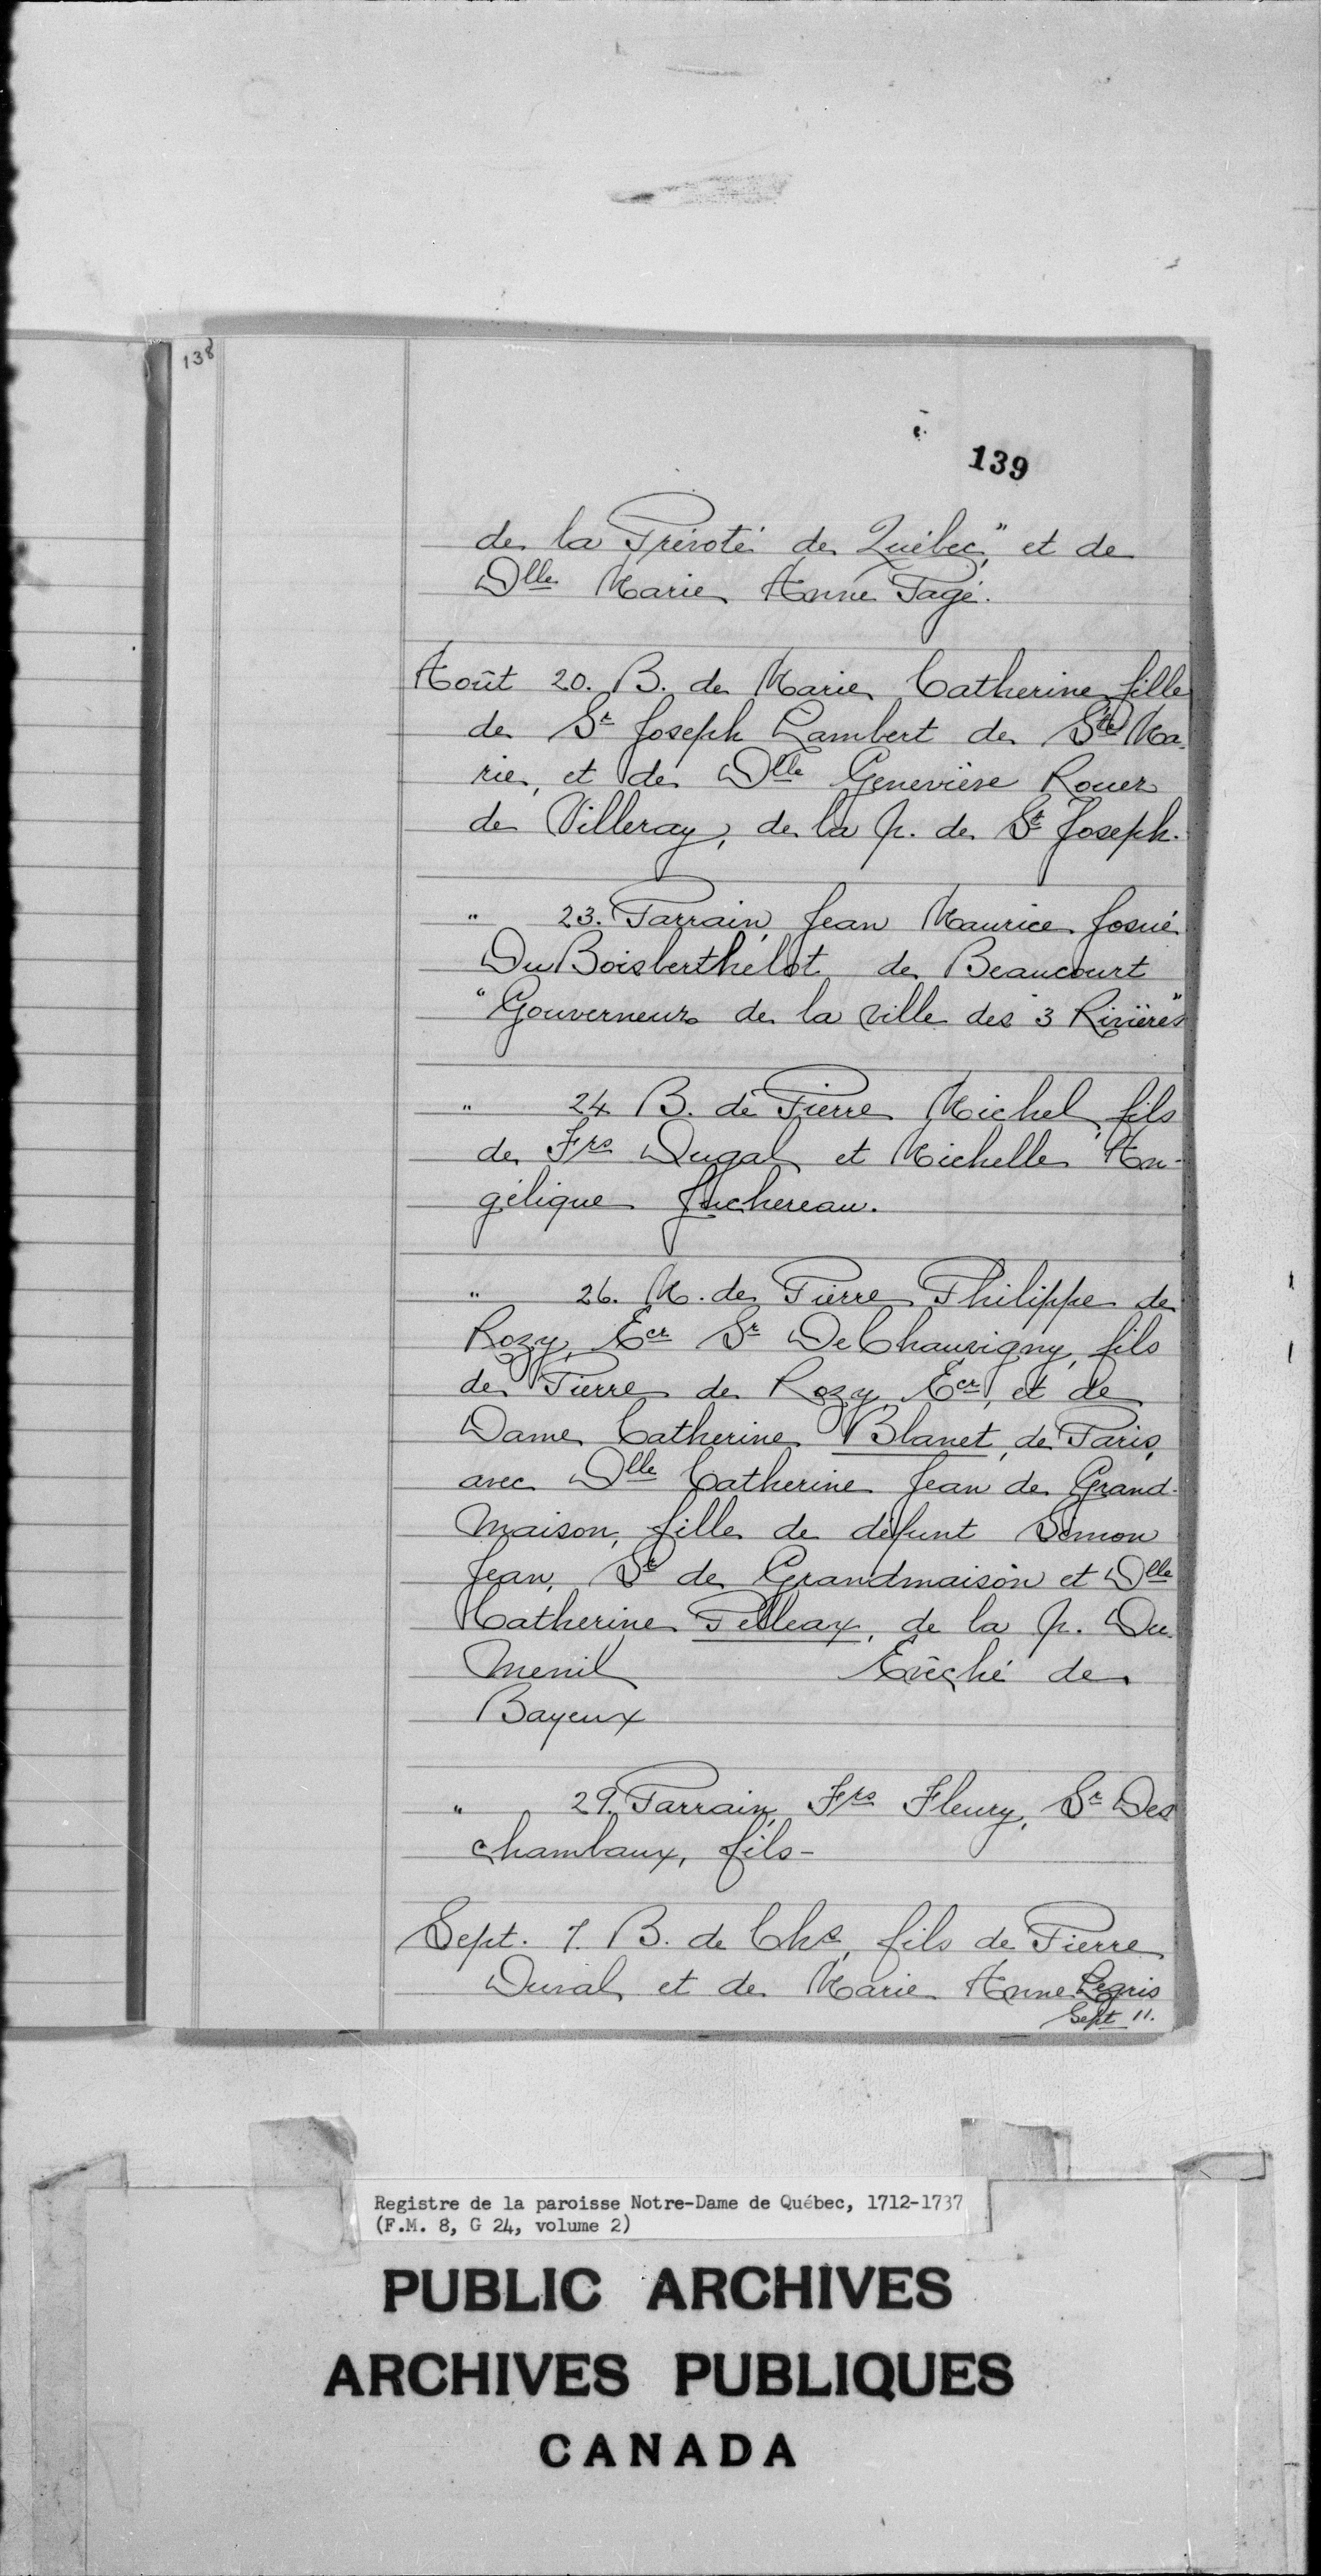 138
139
de la Prévoté de Québec," et de
Dlle Marie Anne Pagé.
Août 20. B. de Marie Catherine, fille
de Sr Joseph Lambert de Ste Ma-
rie, et de Dlle Geneviève Rouer
de Villeray, de la p. de St Joseph.
" 23. Parrain, Jean Maurice Josué
DuBoisberthelot de Beaucourt
"Gouverneur de la ville des 3 Rivières"
" 24 B. de Pierre Michel, fils
de Frs Dugal et Michelle An-
gélique Juchereau.
" 26. M. de Pierre Philippe de
Rozy, Ecr Sr DeChauvigny, fils
de Pierre de Rozy, Ecr, et de
Dame Catherine Blanet, de Paris,
avec Dlle Catherine Jean de Grand-
maison, fille de défunt Simon
Jean, Sr de Grandmaison et Dlle
Catherine Pelleax, de la p. Du
Menil Evêché de
Bayeux
" 29. Parrain, Frs Fleury, Sr Des
chambaux, fils-
Sept. 7. B. de Chs, fils de Pierre
Duval et de Marie Anne Legris
Sept 11.
Registre de la paroisse Notre-Dame de Québec, 1712-1737
(F.M. 8, G 24, volume 2)
PUBLIC ARCHIVES
ARCHIVES PUBLIQUES
CANADA